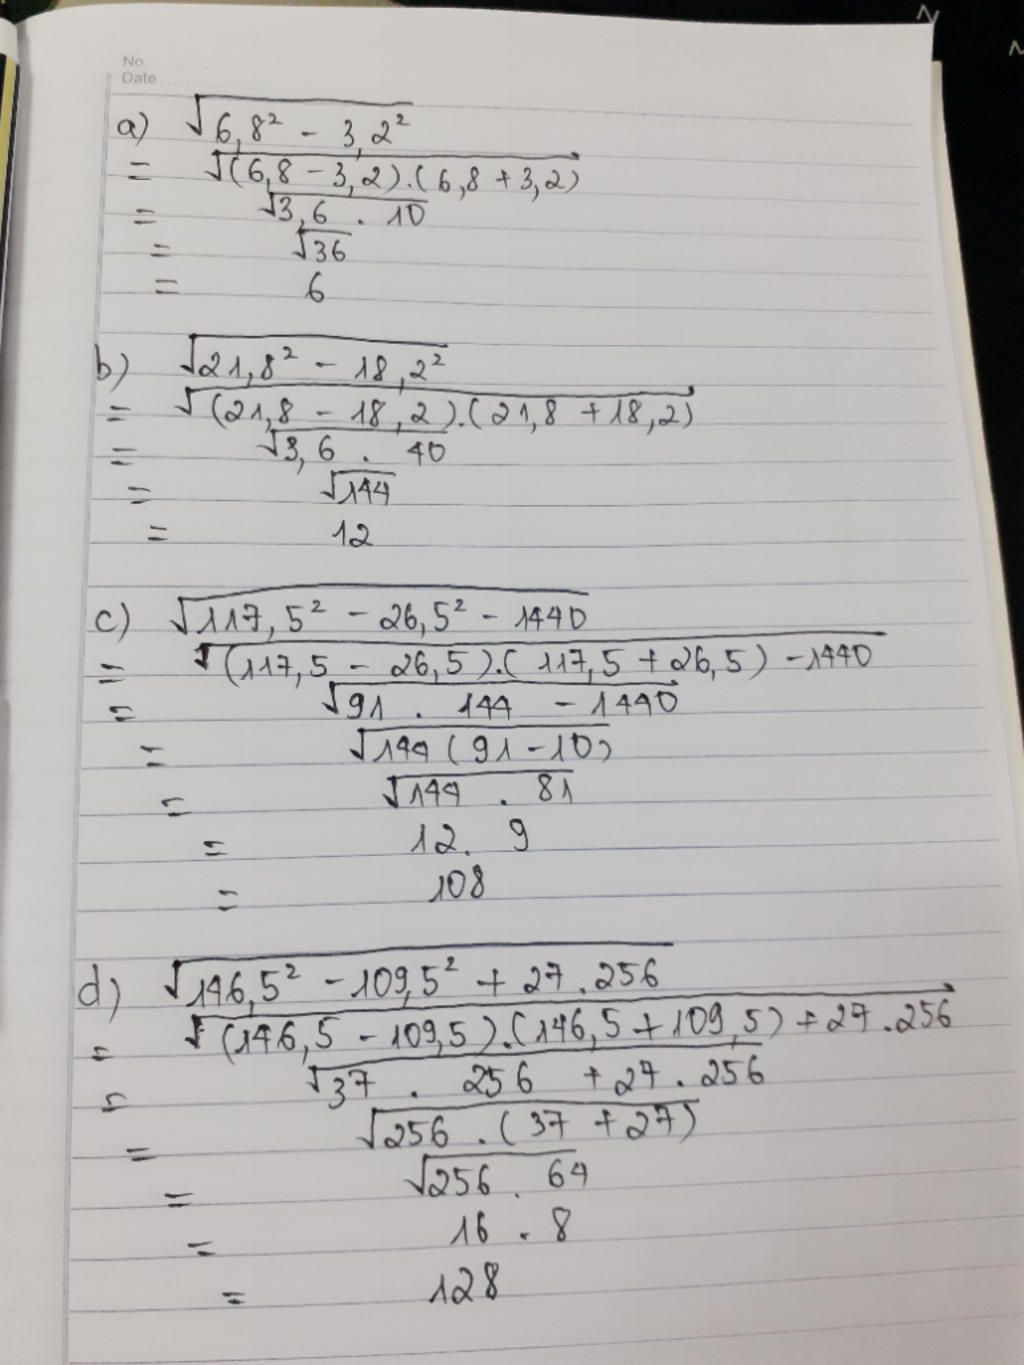 No.
Date
a) √6,8² - 3,2²
= √(6,8 - 3,2).(6,8 + 3,2)
= √3,6 . 10
= √36
= 6
b) √21,8² - 18,2²
= √(21,8 - 18,2).(21,8 + 18,2)
= √3,6 . 40
= √144
= 12
c) √117,5² - 26,5² - 1440
= √(117,5 - 26,5).(117,5 + 26,5) - 1440
= √91 . 144 - 1440
= √144 (91 - 10)
= √144 . 81
= 12 . 9
= 108
d) √146,5² - 109,5² + 27 . 256
= √(146,5 - 109,5).(146,5 + 109,5) + 27 . 256
= √37 . 256 + 27 . 256
= √256 . (37 + 27)
= √256 . 64
= 16 . 8
= 128